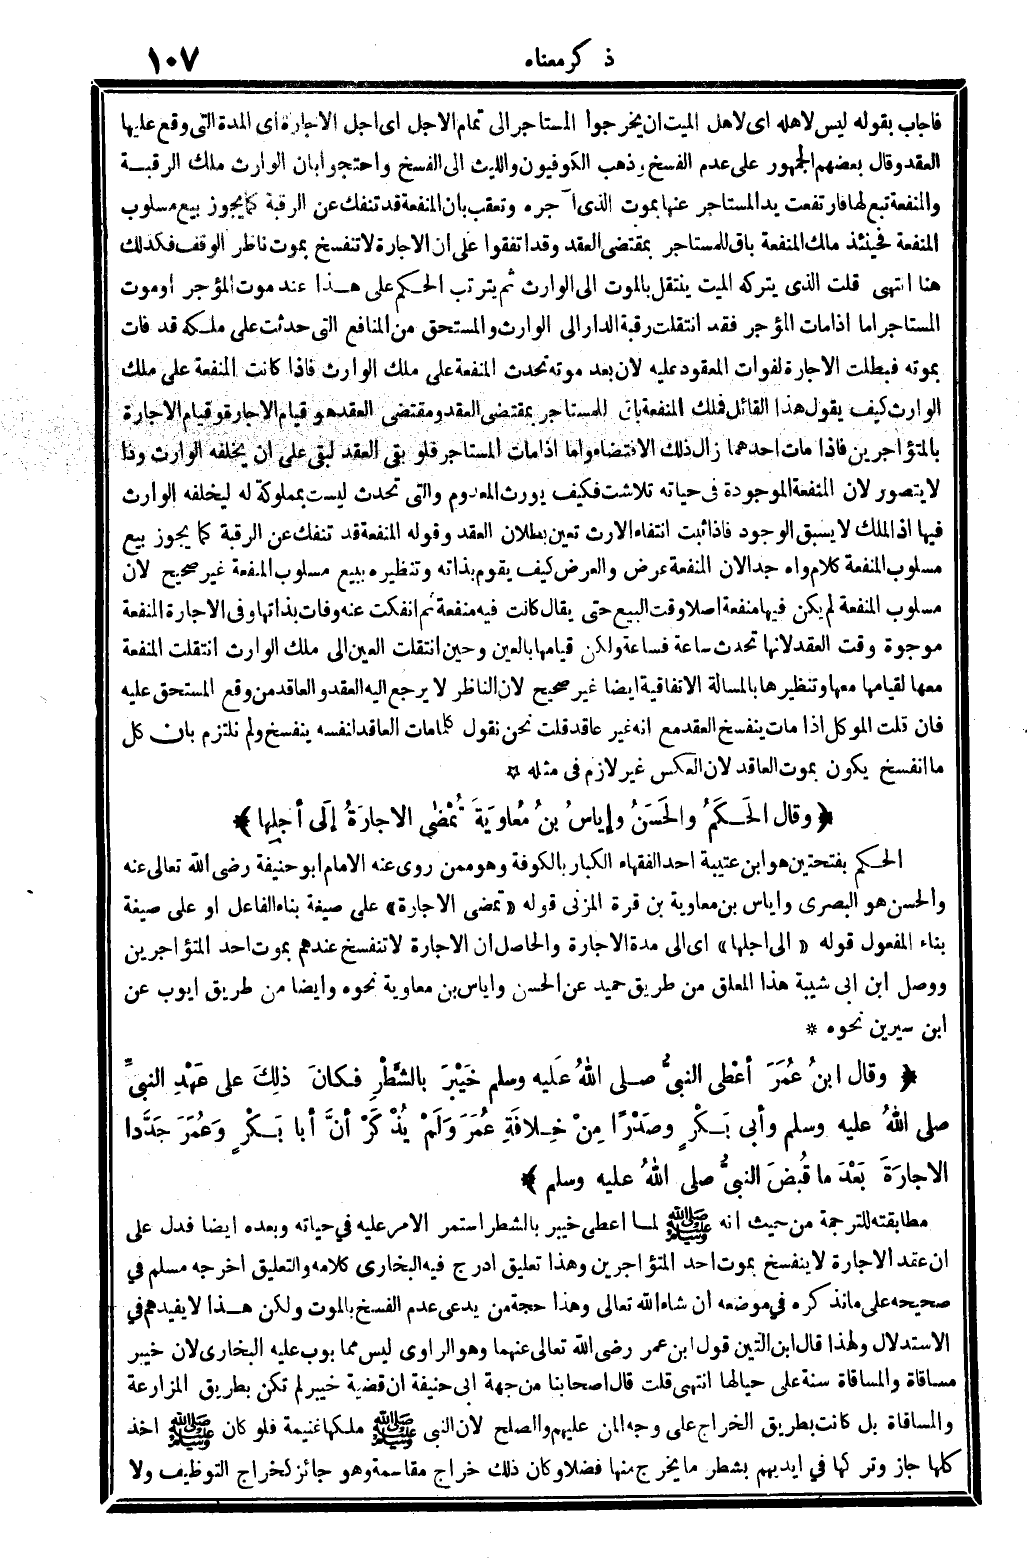 ذكر معناه ١٠٧
فاجاب بقوله ليس لاهله اى لاهل الميت ان يخرجوا المستاجر الى تمام الاجل اى اجل الاجارة اى المدة التى وقع عليها
العقد وقال بعضهم الجمهور على عدم الفسخ وذهب الكوفيون والليث الى الفسخ واحتجوا بان الوارث ملك الرقبــة
والمنفعة تبع لها فارتفعت يد المستاجر عنها بموت الذى آجره وتعقب بان المنفعة قد تنفك عن الرقبة كما يجوز بيع مسلوب
المنفعة فحينئذ ملك المنفعة باق للمستاجر بمقتضى العقد وقد اتفقوا على ان الاجارة لا تنفسخ بموت ناظر الوقف فكذلك
هنا انتهى قلت الذى يتركه الميت ينتقل بالموت الى الوارث ثم يترتب الحكم على هــذا عند موت المؤجر او موت
المستاجر اما اذا مات المؤجر فقد انتقلت رقبة الدار الى الوارث والمستحق من المنافع التى حدثت على ملكه قد فات
بموته فبطلت الاجارة لفوات المعقود عليه لان بعد موته تحدث المنفعة على ملك الوارث فاذا كانت المنفعة على ملك
الوارث كيف يقول هذا القائل فملك المنفعة باق للمستاجر بمقتضى العقد ومقتضى العقد هو قيام الاجارة وقيام الاجارة
بالمتؤاجرين فاذا مات احدهما زال ذلك الاقتضاء واما اذا مات المستاجر فلو بقى العقد لبقى على ان يخلفه الوارث وذا
لا يتصور لان المنفعة الموجودة فى حياته تلاشت فكيف يورث المعدوم والتى تحدث ليست بمملوكة له ليخلفه الوارث
فيها اذ الملك لا يسبق الوجود فاذا ثبت انتفاء الارث تعين بطلان العقد وقوله المنفعة قد تنفك عن الرقبة كما يجوز بيع
مسلوب المنفعة كلام واه جدا لان المنفعة عرض والعرض كيف يقوم بذاته وتنظيره ببيع مسلوب المنفعة غير صحيح لان
مسلوب المنفعة لم يكن فيها منفعة اصلا وقت البيع حتى يقال كانت فيه منفعة ثم انفكت عنه وفات بذاتها وفى الاجارة المنفعة
موجوة وقت العقد لانها تحدث ساعة فساعة ولكن قيامها بالعين وحين انتقلت العين الى ملك الوارث انتقلت المنفعة
معها لقيامها معها وتنظيرها بالمسالة الاتفاقية ايضا غير صحيح لان الناظر لا يرجع اليه العقد والعاقد من وقع المستحق عليه
فان قلت الموكل اذا مات ينفسخ العقد مع انه غير عاقد قلت نحن نقول كلما مات العاقد لنفسه ينفسخ ولم نلتزم بان كل
ما انفسخ يكون بموت العاقد لان العكس غير لازم فى مثله ۞
﴿ وقال الحَـكَمُ والحَسَنُ وإياسُ بنُ مُعاوِيَةَ تُمْضَى الاجارَةُ إلَى أجلِها ﴾
الحكم بفتحتين هو ابن عتيبة احد الفقهاء الكبار بالكوفة وهو ممن روى عنه الامام ابو حنيفة رضى الله تعالى عنه
والحسن هو البصرى واياس بن معاوية بن قرة المزنى قوله « تمضى الاجارة » على صيغة بناء الفاعل او على صيغة
بناء المفعول قوله « الى اجلها » اى الى مدة الاجارة والحاصل ان الاجارة لا تنفسخ عندهم بموت احد المتؤاجرين
ووصل ابن ابى شيبة هذا المعلق من طريق حميد عن الحسن واياس بن معاوية نحوه وايضا من طريق ايوب عن
ابن سيرين نحوه *
﴿ وقال ابنُ عُمَرَ أعْطى النبيُّ صــلى اللهُ عَليه وسلم خَيْبَرَ بالشَّطْرِ فـكانَ ذلِكَ على عَهْدِ النبيِّ
صلى اللهُ عليه وسلم وأبى بَـكْرٍ وصَدْرًا مِنْ خِـلافَةِ عُمَرَ وَلَمْ يُذْكَرْ أنَّ أبا بَـكْرٍ وَعُمَرَ جَدَّدا
الاجارَةَ بَعْدَ ما قُبِضَ النبيُّ صلى اللهُ عليه وسلم ﴾
مطابقته للترجمة من حيث انه ﷺ لمــا اعطى خيبر بالشطر استمر الامر عليه في حياته وبعده ايضا فدل على
ان عقد الاجارة لا ينفسخ بموت احد المتؤاجرين وهذا تعليق ادرج فيه البخارى كلامه والتعليق اخرجه مسلم في
صحيحه على ما نذكره في موضعه ان شاء الله تعالى وهذا حجة من يدعى عدم الفسخ بالموت ولكن هــذا لا يفيدهم في
الاستدلال ولهذا قال ابن التين قول ابن عمر رضى الله تعالى عنهما وهو الراوى ليس مما بوب عليه البخارى لان خيبر
مساقاة والمساقاة سنة على حيالها انتهى قلت قال اصحابنا من جهة ابى حنيفة ان قضية خيبر لم تكن بطريق المزارعة
والمساقاة بل كانت بطريق الخراج على وجه المن عليهم والصلح لان النبى ﷺ ملكها غنيمة فلو كان ﷺ اخذ
كلها جاز وتركها في ايديهم بشطر ما يخرج منها فضلا وكان ذلك خراج مقاسمة وهو جائز لخراج التوظيف ولا